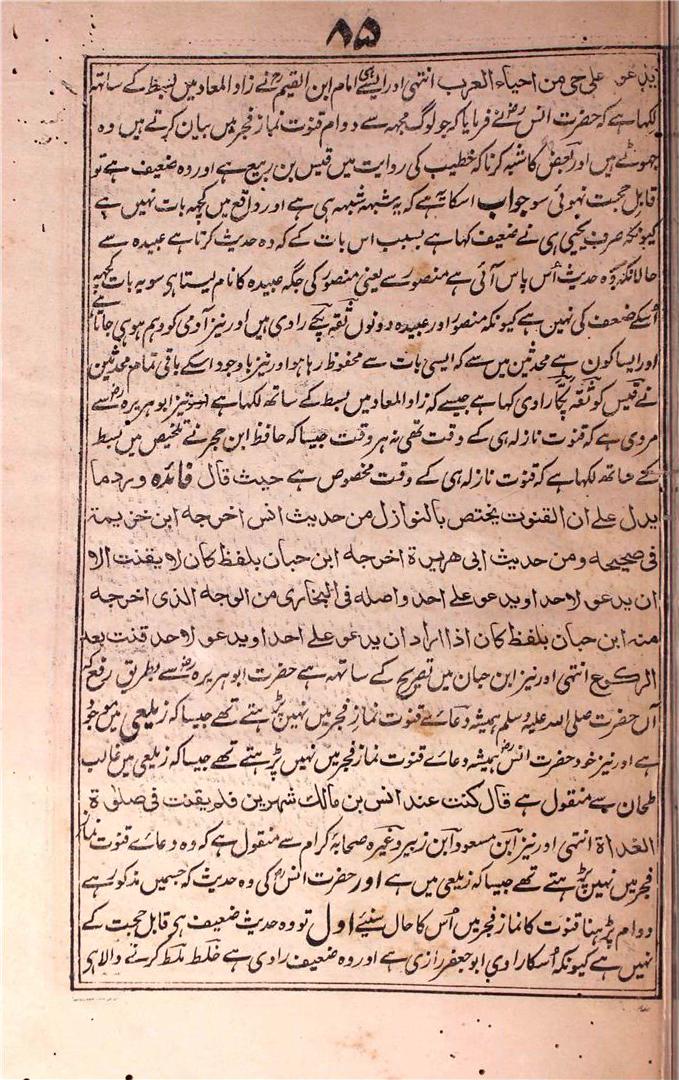 ۸۵
یدعو علی حی من احیاء العرب انتہی اور ایسے ہی امام ابن القیم رح نے زاد المعاد میں بسط کے ساتہ
لکہا ہے کہ حضرت انس رض نے فرمایا کہ جو لوگ مجہہ سے دوام قنوت نماز فجر میں بیان کرتے ہیں وہ
جہوٹے ہیں اور بعض کا شبہ کرنا کہ خطیب کی روایت میں قیس بن ربیع ہے اور وہ ضعیف ہے تو
قابل حجت نہوئی سو جواب اسکا یہ ہے کہ یہ شبہہ شبہہ ہی ہے اور واقع میں کچہہ بات نہیں ہے
کیونکہ صرف یحیی ہی نے ضعیف کہا ہے بسبب اس بات کے کہ وہ حدیث کرتا ہے عبیدہ سے
حالانکہ وہ حدیث اُس پاس آئی ہے منصور سے یعنی منصور کی جگہ عبیدہ کا نام لیتا ہی سو یہ بات کچہہ
اُسکے ضعف کی نہیں ہے کیونکہ منصور اور عبیدہ دونوں ثقہ پکے راوی ہیں اور نیز آدمی کو وہم ہو ہی جاتا ہے
اور ایسا کون ہے محدثین میں سے کہ ایسی بات سے محفوظ رہا ہو اور نیز باوجود اسکے باقی تمام محدثین
نے قیس کو ثقہ پکا راوی کہا ہے جیسے کہ زاد المعاد میں بسط کے ساتھ لکہا ہے اور نیز ابو ہریرہ رض سے
مروی ہے کہ قنوت نازلہ ہی کے وقت تھی نہ ہر وقت جیسا کہ حافظ ابن حجر نے تلخیص میں بسط
کے ساتھ لکہا ہے کہ قنوت نازلہ ہی کے وقت مخصوص ہے حیث قال فائدہ ورد ما
یدل علی ان القنوت یختص بالنوازل من حدیث انس اخرجه ابن خزیمة
فی صحیحه ومن حدیث ابی هریرة اخرجه ابن حبان بلفظ کان لا یقنت الا
ان یدعو لاحد او یدعو علی احد واصله فی البخاری من الوجه الذی اخرجه
منه ابن حبان بلفظ کان اذا اراد ان یدعو علی احد او یدعو لاحد قنت بعد
الرکوع انتہی اور نیز ابن حبان میں تصریح کے ساتہہ ہے حضرت ابو ہریرہ رض سے بطریق رفع کہ
آں حضرت صلی اللہ علیہ وسلم ہمیشہ دعاے قنوت نماز فجر میں نہیں پڑہتے تھے جیسا کہ زیلعی میں موجود
ہے اور نیز خود حضرت انس رض ہمیشہ دعاے قنوت نماز فجر میں نہیں پڑہتے تھے جیسا کہ زیلعی میں غالب
طحان سے منقول ہے قال کنت عند انس بن مالک شهرین فلم یقنت فی صلوة
الغداة انتہی اور نیز ابن مسعود و ابن زبیر وغیرہ صحابہ کرام سے منقول ہے کہ وہ دعاے قنوت نماز
فجر میں نہیں پڑہتے تھے جیسا کہ زیلعی میں ہے اور حضرت انس رض کی وہ حدیث کہ جسمیں مذکور ہے
دوام پڑہنا قنوت کا نماز فجر میں اُس کا حال سنیے اول تو وہ حدیث ضعیف ہی قابل حجت کے
نہیں ہے کیونکہ اُسکا راوی ابو جعفر رازی ہے اور وہ ضعیف راوی ہے خلط ملط کرنے والا ہی